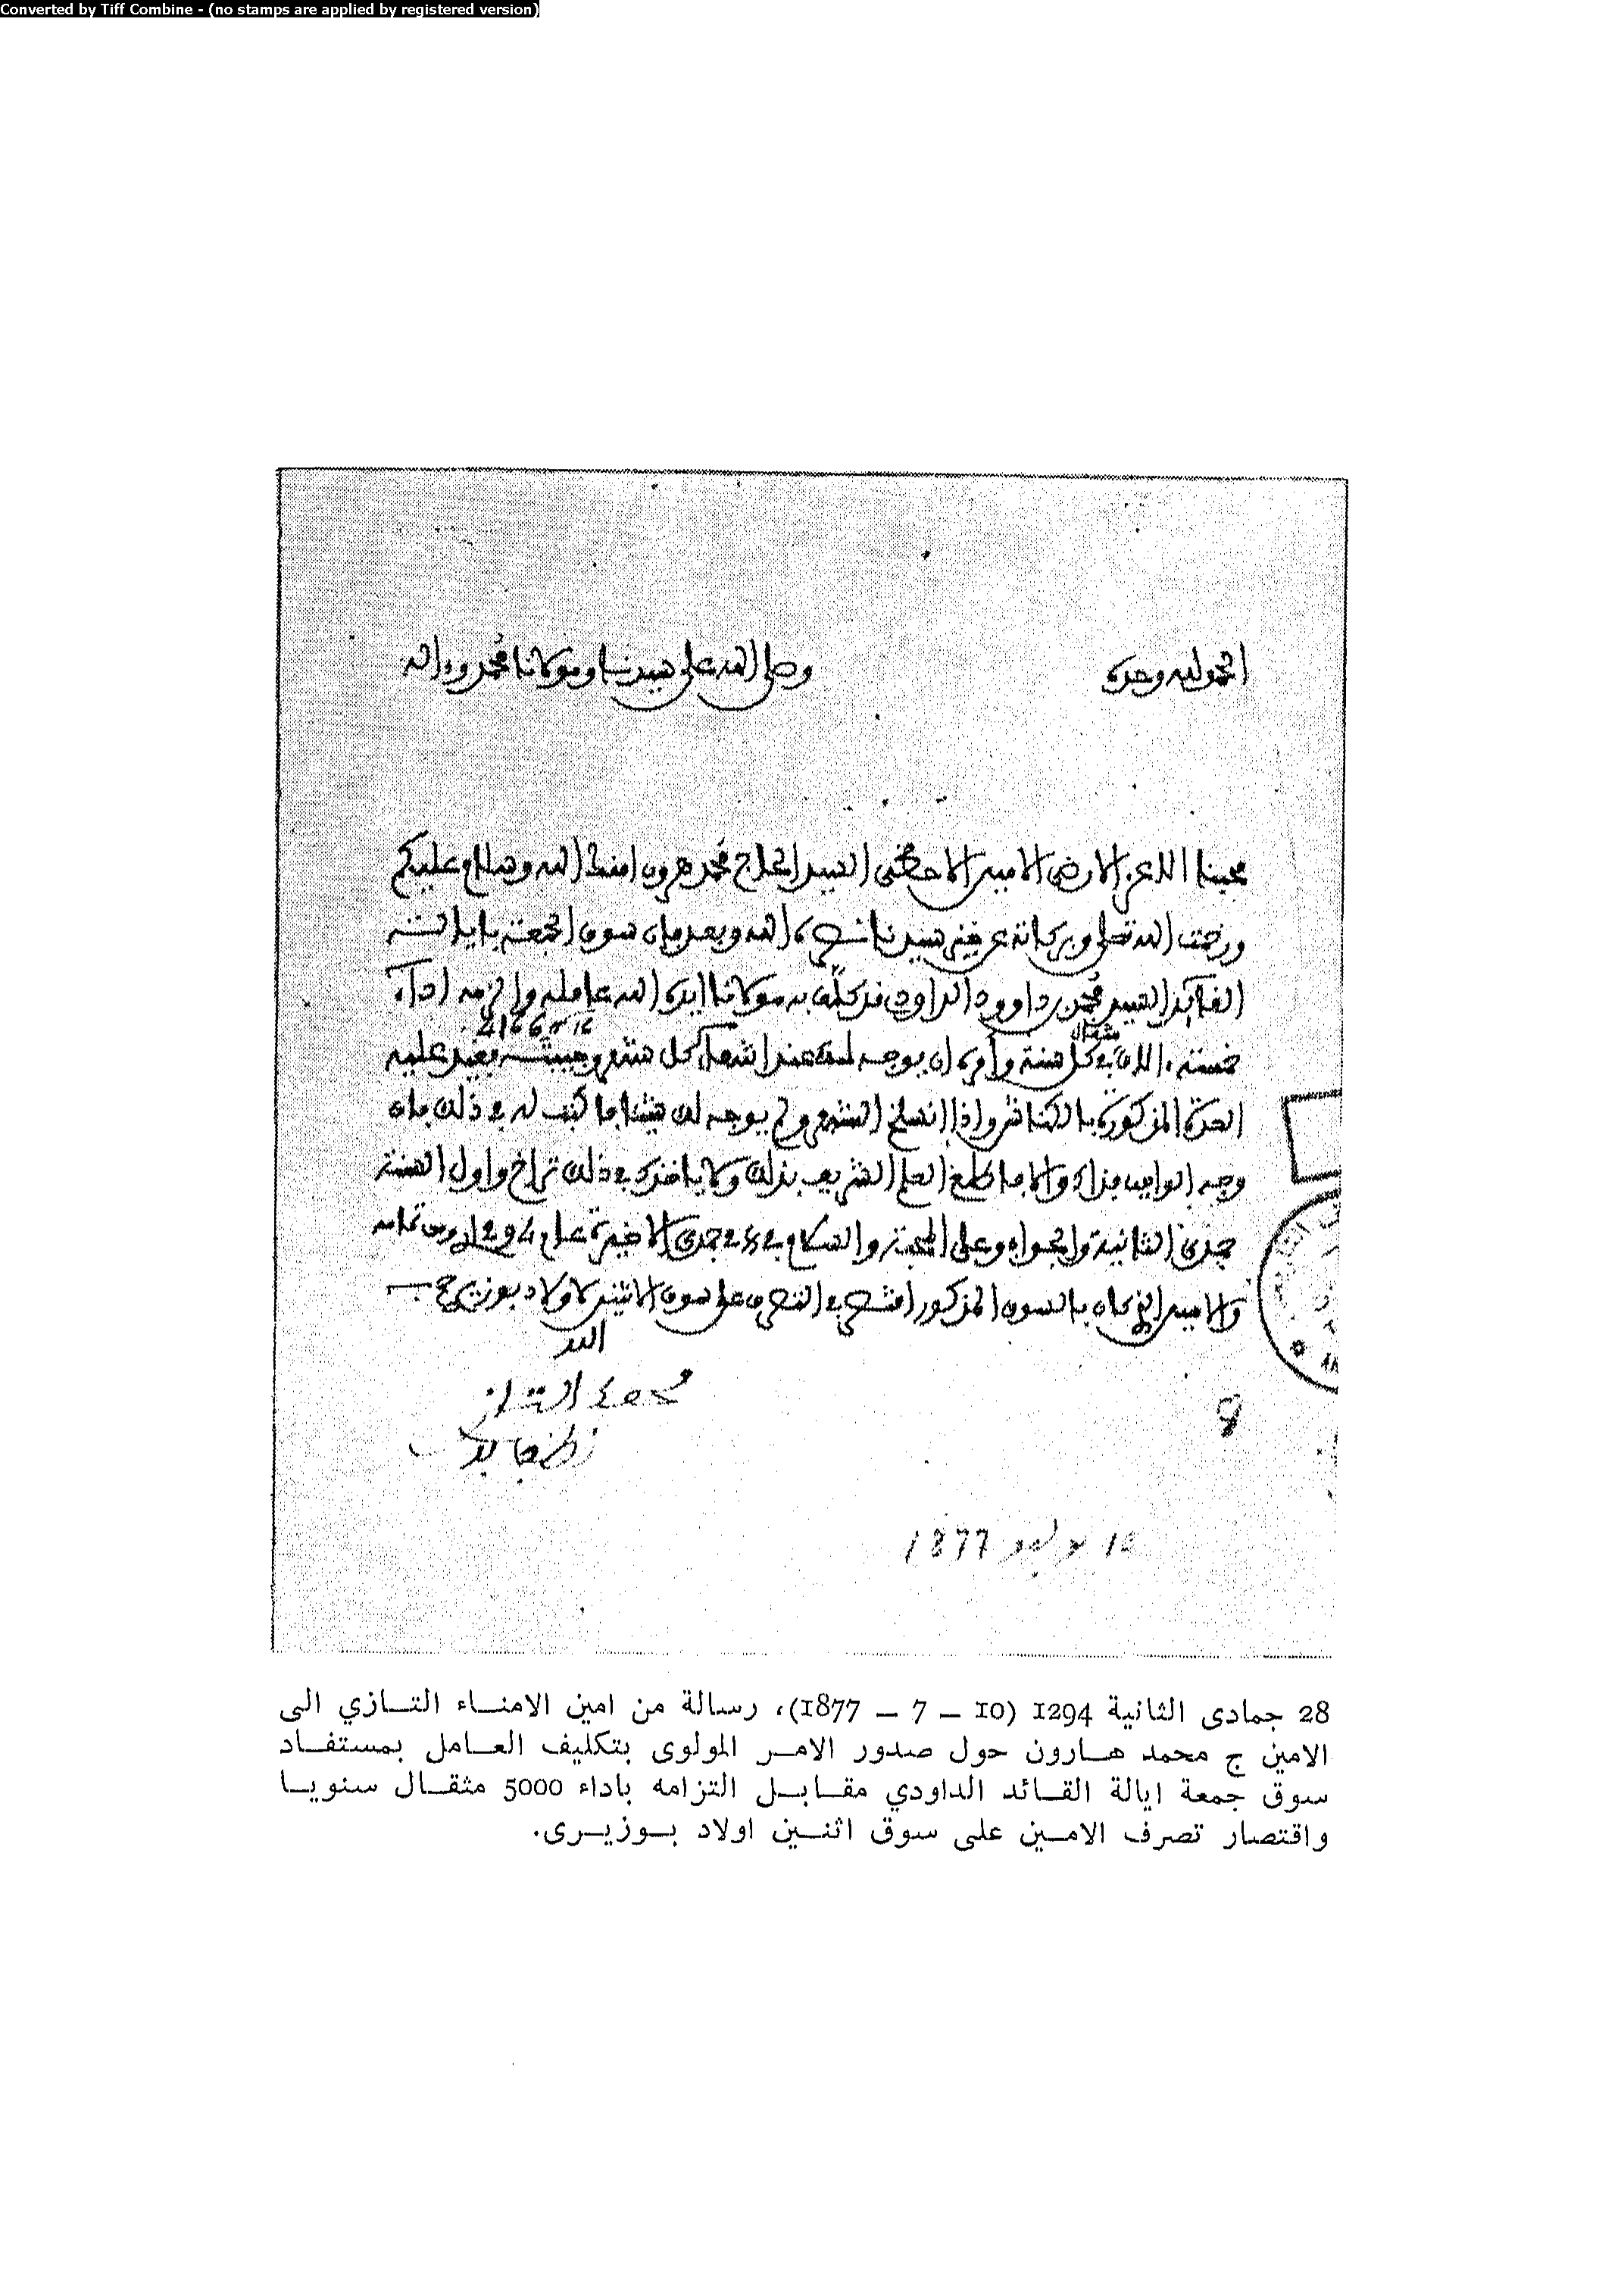 Converted by Tiff Combine - (no stamps are applied by registered version)
الحمد لله وحده وصلى الله على سيدنا ومولانا محمد وءاله
محبنا الاعز الارضى الامين الاحظى السيد الحاج محمد هرون امنك الله وسلام عليكم
ورحمت الله تعلى وبركاته عن خير سيدنا نصره الله وبعد فان سوق الجمعة بايالة
القائد السيد محمد بن داوود الداودي قد كلف به مولانا ايده الله عامله والزمه اداء
خمسة ءالاف مثقال في كل سنة وأمره ان يوجه لك عند انسلاخ كل شهر
4166
العدة المذكورة بالكناش واذا انسلخ الشهر ولم يوجه لك شيئا فاكتب له في ذلك فان
وجه الواجب فذاك والا فاطلع العلم الشريف بذلك ولا ياخذك في ذلك تراخ واول السنة
جمدى الثانية والجواب وعلى المحبة والسلام في 28 جمدى الاخيرة عام 1294 ومن تمامه
والامين الذي كان بالسوق المذكور اقتصر في التصرف على سوق الاثنين لاولاد بوزيري صح
الله
محمد التازي
10 يوليوز 1877
28 جمادى الثانية 1294 (10 – 7 – 1877)، رسالة من امين الامناء التازي الى
الامين ج محمد هارون حول صدور الامر المولوى بتكليف العامل بمستفاد
سوق جمعة ايالة القائد الداودي مقابل التزامه باداء 5000 مثقال سنويا
واقتصار تصرف الامين على سوق اثنين اولاد بوزيرى.